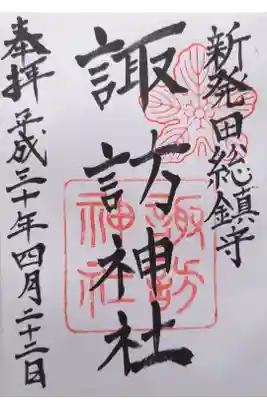 新発田総鎮守
諏訪神社
奉拝 平成三十年四月二十二日
諏訪
神社